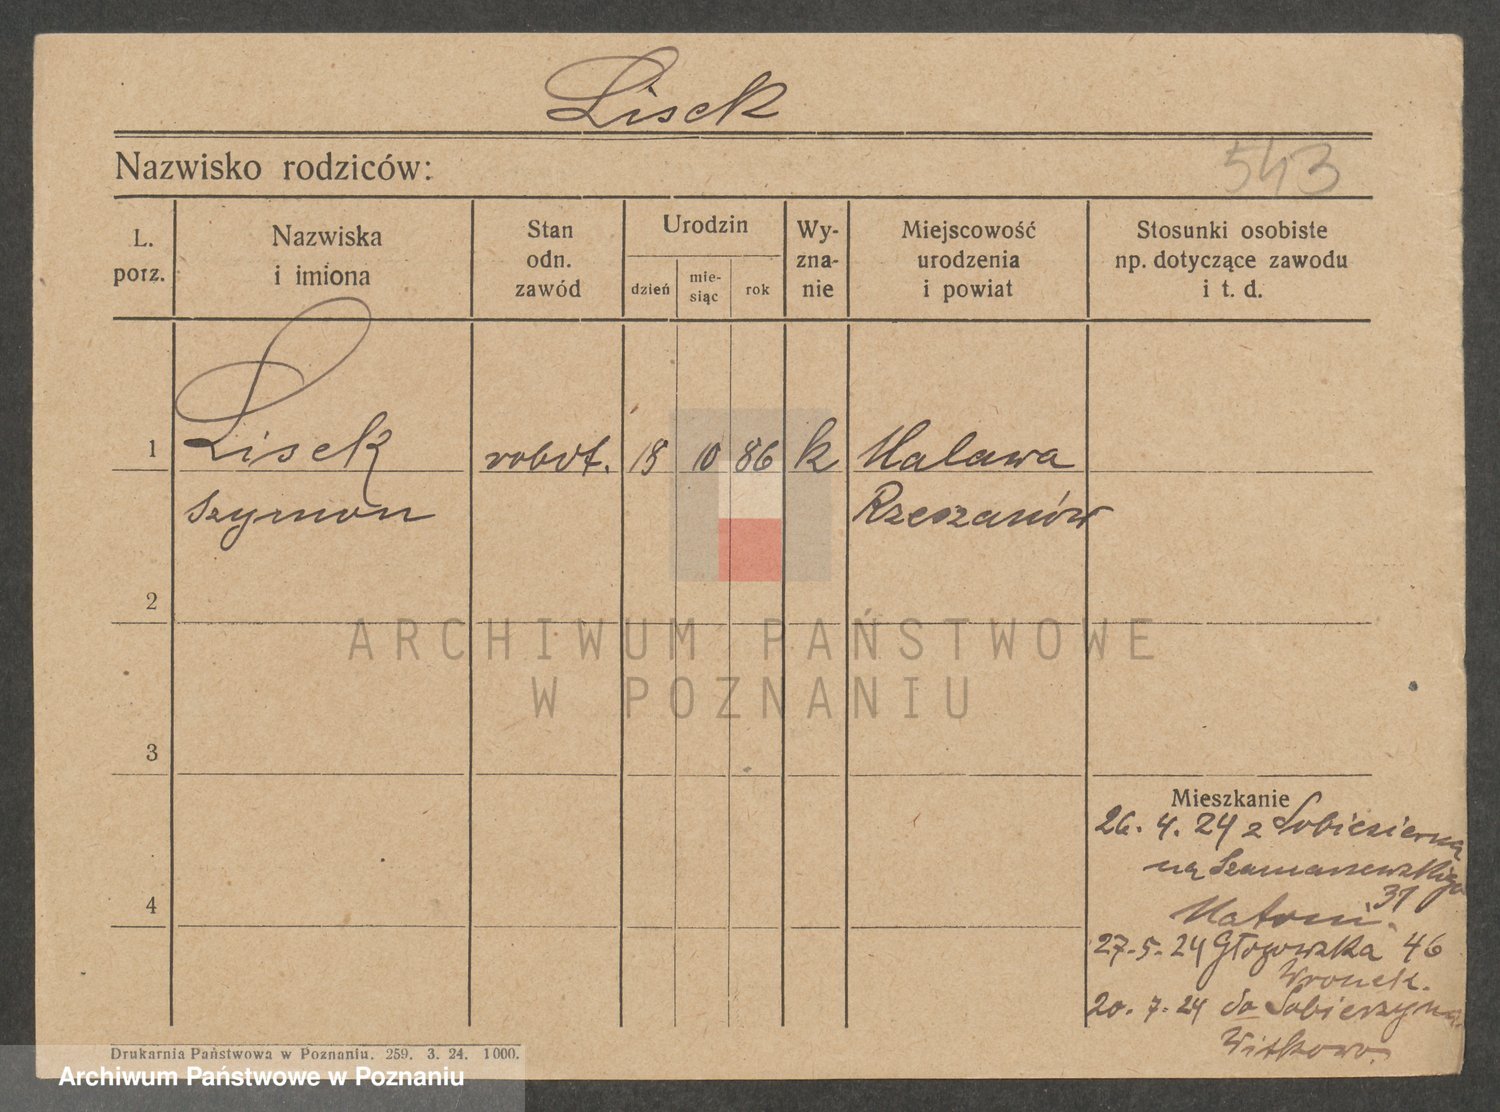 Lisek
Nazwisko rodziców:
543
L. porz.
Nazwiska i imiona
Stan odn. zawód
Urodzin
dzień
mie-siąc
rok
Wy-zna-nie
Miejscowość urodzenia i powiat
Stosunki osobiste np. dotyczące zawodu i t. d.
1 Lisek robot. 18 10 86 k Malawa
Szymon Rzeszanów
2
ARCHIWUM PAŃSTWOWE
W POZNANIU
3
Mieszkanie
26. 4. 24 z
na
31
4
27.5.24 Głogowska 46
20. 7. 24 do
Witkowo
Drukarnia Państwowa w Poznaniu. 259. 3. 24. 1000.
Archiwum Państwowe w Poznaniu